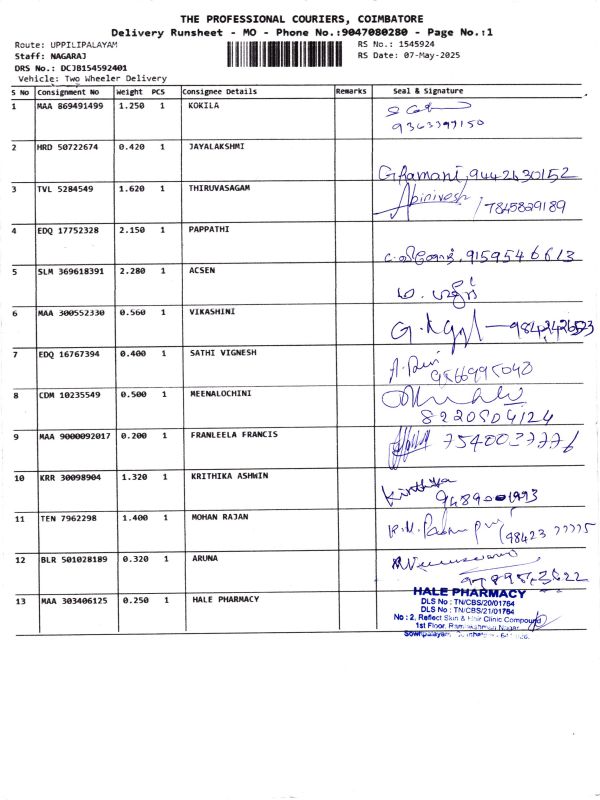 THE PROFESSIONAL COURIERS, COIMBATORE
Delivery Runsheet - MO - Phone No.:9047080280 - Page No.:1
Route: UPPILIPALAYAM
RS No.: 1545924
Staff: NAGARAJ
RS Date: 07-May-2025
DRS No.: DCJB154592401
Vehicle: Two Wheeler Delivery
S No Consignment No Weight PCS Consignee Details Remarks Seal & Signature
1 MAA 869491499 1.250 1 KOKILA
9363397150
2 HRD 50722674 0.420 1 JAYALAKSHMI
G.Ramani, 9442630152
3 TVL 5284549 1.620 1 THIRUVASAGAM
Abinivesh / 7845829189
4 EDQ 17752328 2.150 1 PAPPATHI
9159546613
5 SLM 369618391 2.280 1 ACSEN
6 MAA 300552330 0.560 1 VIKASHINI
7 EDQ 16767394 0.400 1 SATHI VIGNESH
A. Devi
9566995048
8 CDM 10235549 0.500 1 MEENALOCHINI
8220504124
9 MAA 9000092017 0.200 1 FRANLEELA FRANCIS
7540037776
10 KRR 30098904 1.320 1 KRITHIKA ASHWIN
Krithika
9489001993
11 TEN 7962298 1.400 1 MOHAN RAJAN
(98423 77775
12 BLR 501028189 0.320 1 ARUNA
13 MAA 303406125 0.250 1 HALE PHARMACY
HALE PHARMACY
DLS No : TN/CBS/20/01764
DLS No : TN/CBS/21/01764
No : 2, Reflect Skin & Hair Clinic Compound
1st Floor, Ramakrishnan Nagar
Sowripalayam, Coimbatore